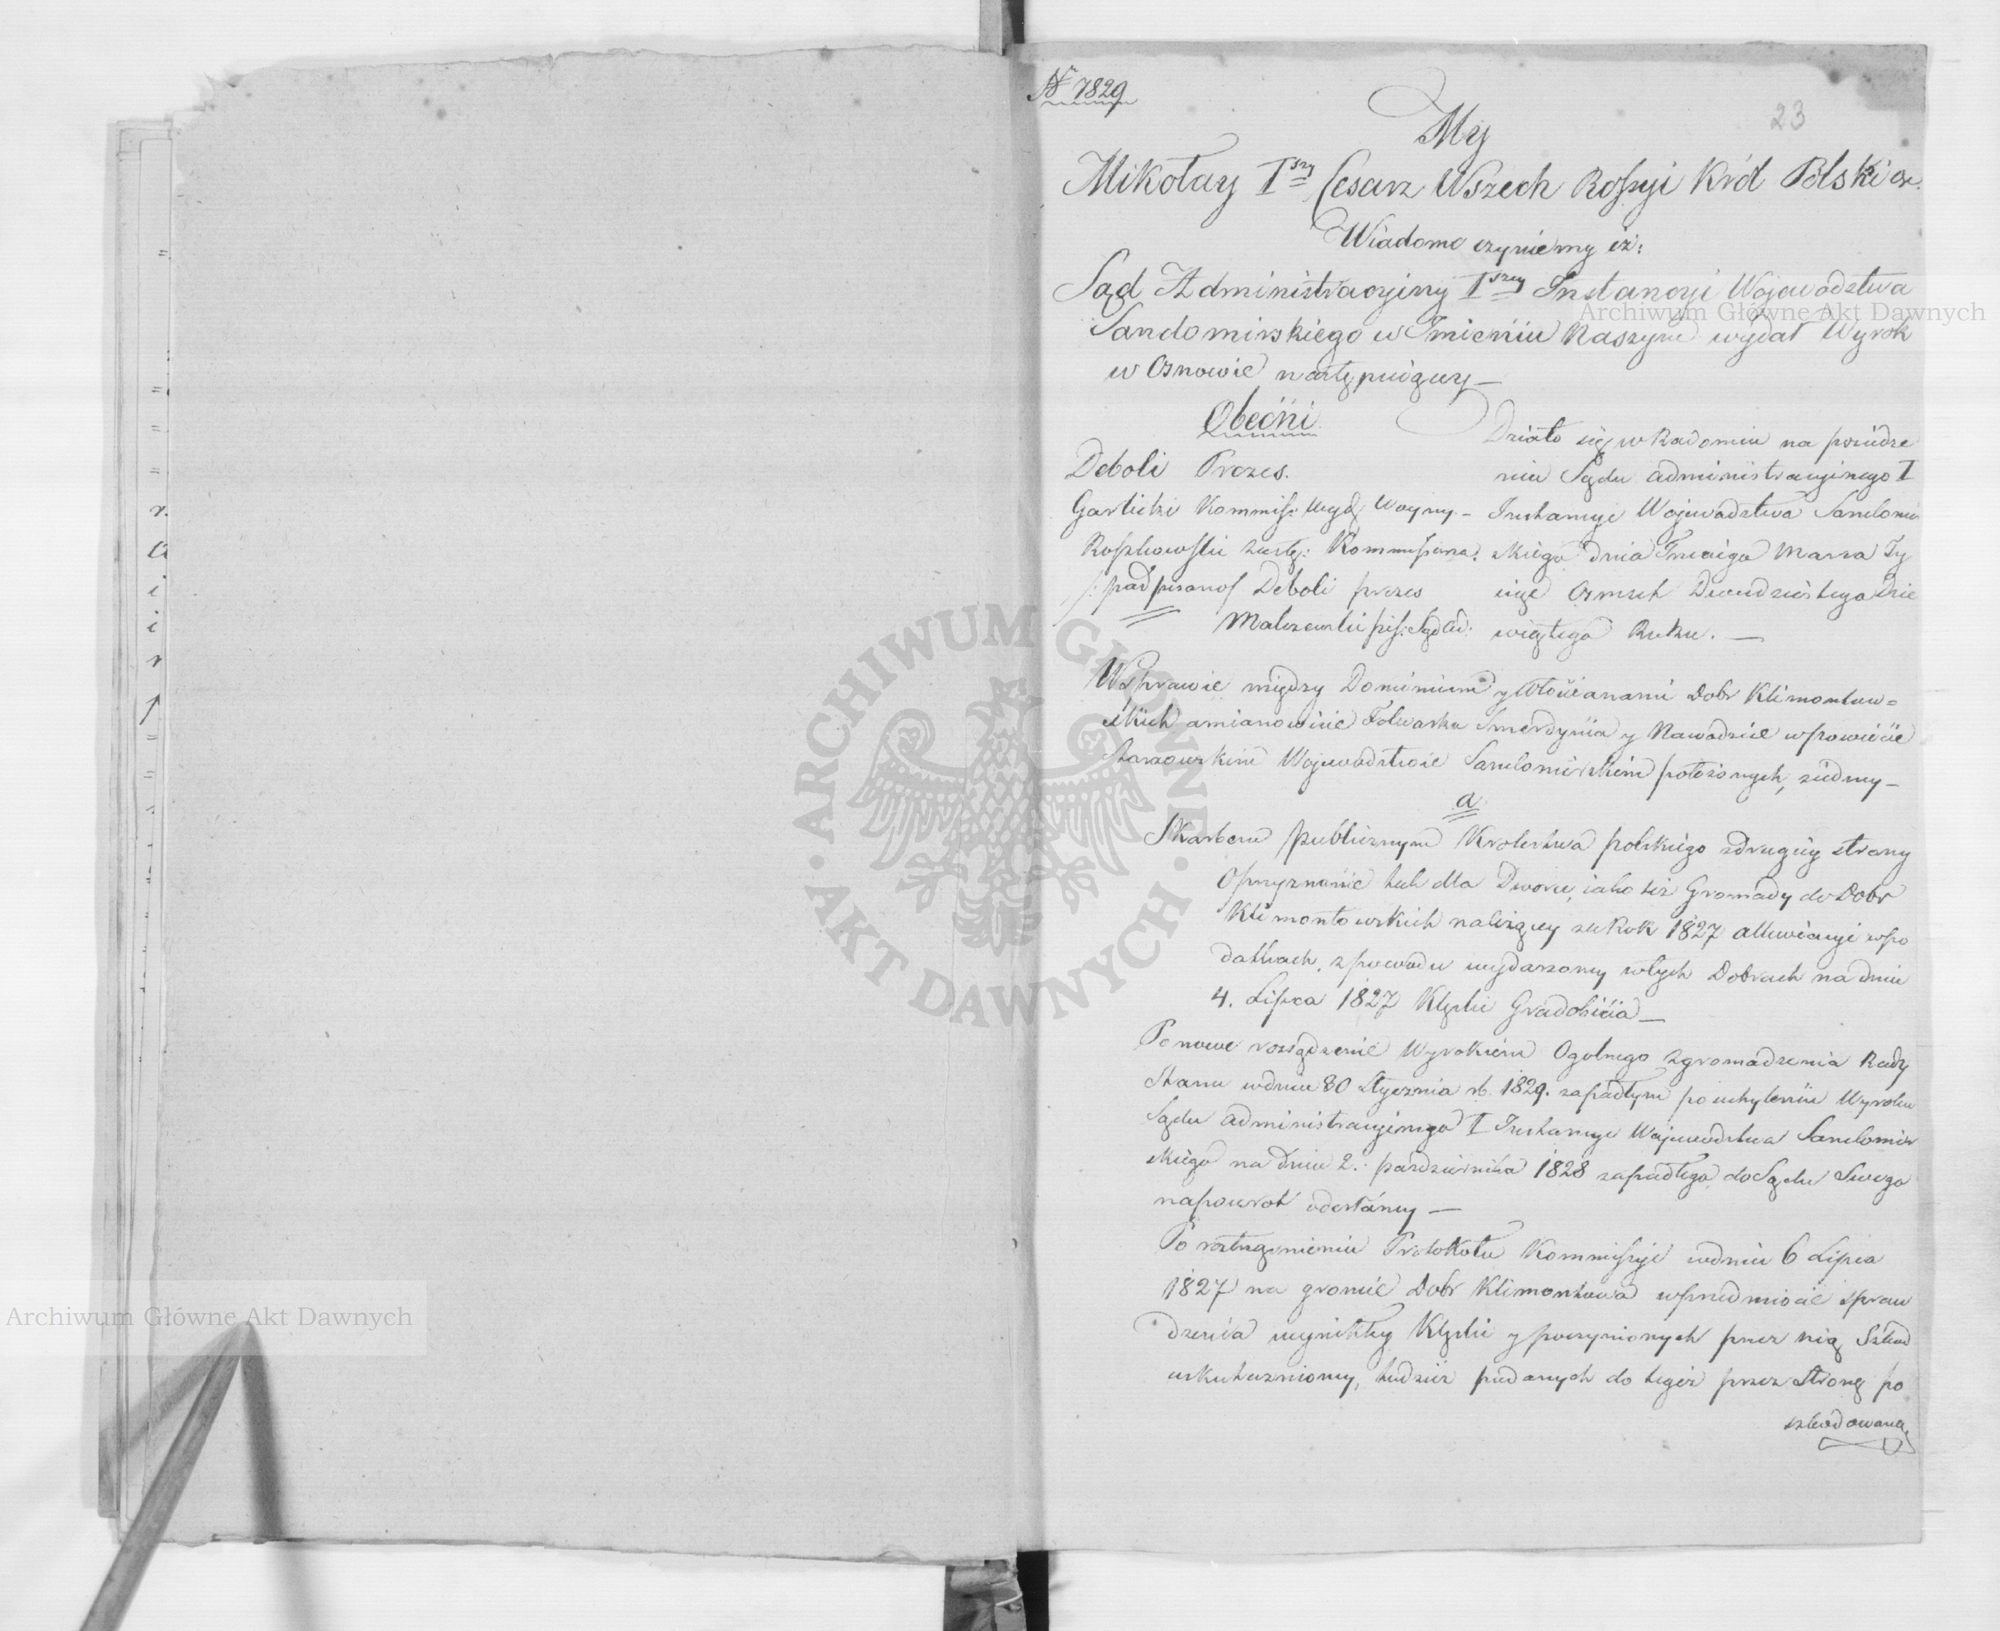 Nr 7829
23
My
Mikołay Iszy Cesarz Wszech Rossyi Król Polski etc.
Wiadomo czyniemy iż:
Sąd Administracyiny Iszey Instancyi Wojewodztwa
Sandomirskiego w Imieniu Naszym wydał Wyrok
w Osnowie następuiącey —
Obecni
Deboli Prezes.
Garlicki Kommiss: Wydz Woyny. —
Roszkowski zastę: Kommissarza.
/: podpisano / Deboli prezes
Malczewski pis: Sąd Ad:
Działo się w Radomiu na posiedze
niu Sądu administracyinego I
Instancyi Wojewodztwa Sandomir
skiego dnia Trzeciego Marca Ty
siąc Osmset Dwudziestego Dzie
wiątego Roku. —
W Sprawie między Dominium y Włościanami Dobr Klimontow=
skich a mianowicie Folwarku Smerdynia y Nawodzie w powiecie
Staszowskim Wojewodztwie Sandomirskim położonych, ziedney —
a
Skarbem publicznym Krolestwa polskiego zdrugiey strony
O przyznanie tak dla Dworu, iako też Gromady do Dobr
Klimontowskich należącey za Rok 1827 allewiacyi w po
datkach, z powodu wydarzoney w tych Dobrach na dniu
4. Lipca 1827 Klęski Gradobicia —
Ponowe rozsądzenie Wyrokiem Ogolnego Zgromadzenia Rady
Stanu w dniu 30 Stycznia rb. 1829. zapadłym po uchyleniu Wyroku
Sądu administracyinego I Instancyi Wojewodztwa Sandomir
skiego na dniu 2. pazdziernika 1828 zapadłego do Sądu Swego
napowrot odesłaney —
Po roztrząśnieniu Protokołu Kommissyi w dniu 6 Lipca
1827 na groncie Dobr Klimontowa w przedmiocie spraw
dzenia wynikłey Klęski y poczynionych przez nią Szkod
uskutecznioney, tudzież podanych do tegoż przez Stronę po
szkodowaną
Archiwum Główne Akt Dawnych
Archiwum Główne Akt Dawnych
ARCHIWUM GŁÓWNE · AKT DAWNYCH ·